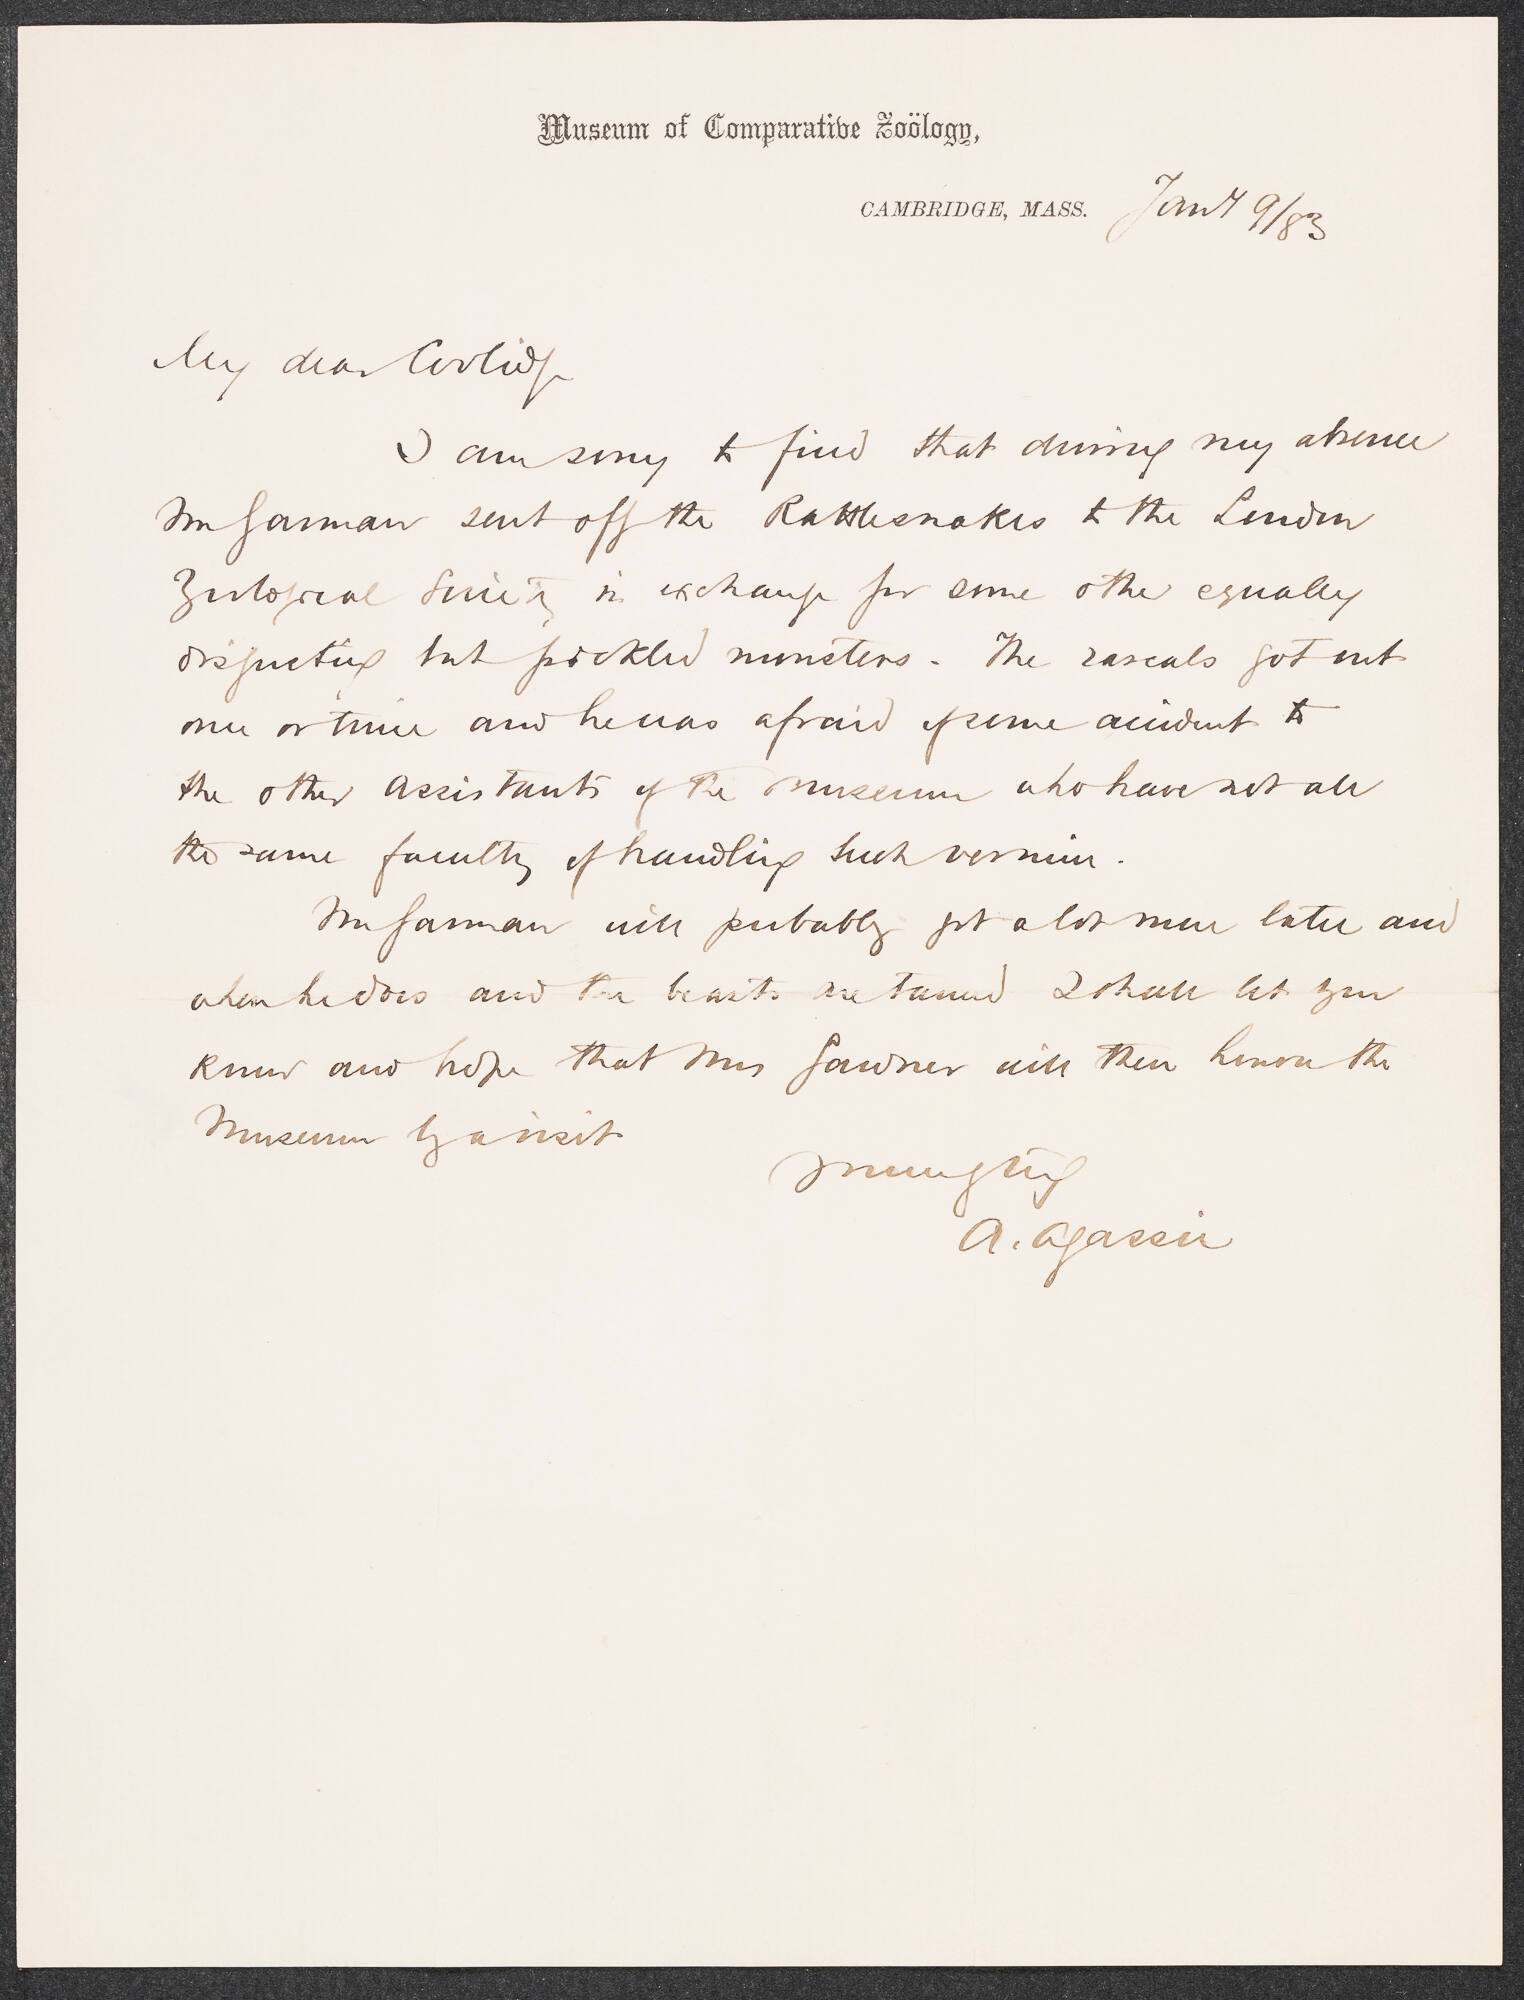 Museum of Comparative Zoölogy,
CAMBRIDGE, MASS. Jany 9/83
My dear Coolidge
I am sorry to find that during my absence
Mr Garman sent off the Rattlesnakes to the London
Zoological Society in exchange for some other equally
disgusting but pickled monsters. The rascals got out
once or twice and he was afraid of some accident to
the other assistants of the Museum who have not all
the same faculty of handling such vermin.
Mr Garman will probably get a lot more later and
when he does and the beasts are tamed I shall let you
know and hope that Mrs Gardner will then honor the
Museum by a visit
Yours truly
A. Agassiz